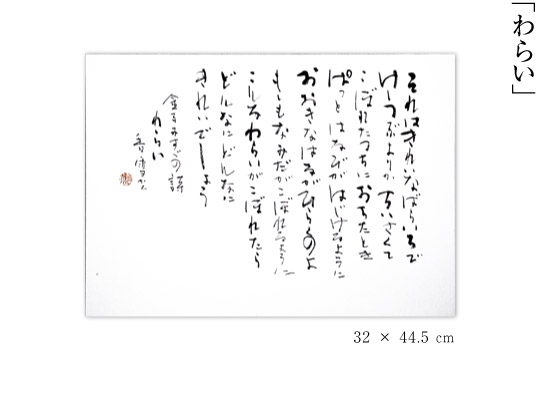 「わらい」
それはきれいなばらいろで
けしつぶよりかちいさくて
こぼれてつちにおちたとき
ぱっとはなびがはじけるように
おおきなはながひらくのよ
もしもなみだがこぼれるように
こんなわらいがこぼれたら
どんなにどんなに
きれいでしょう
金子みすゞの詩
わらい
32 × 44.5 cm